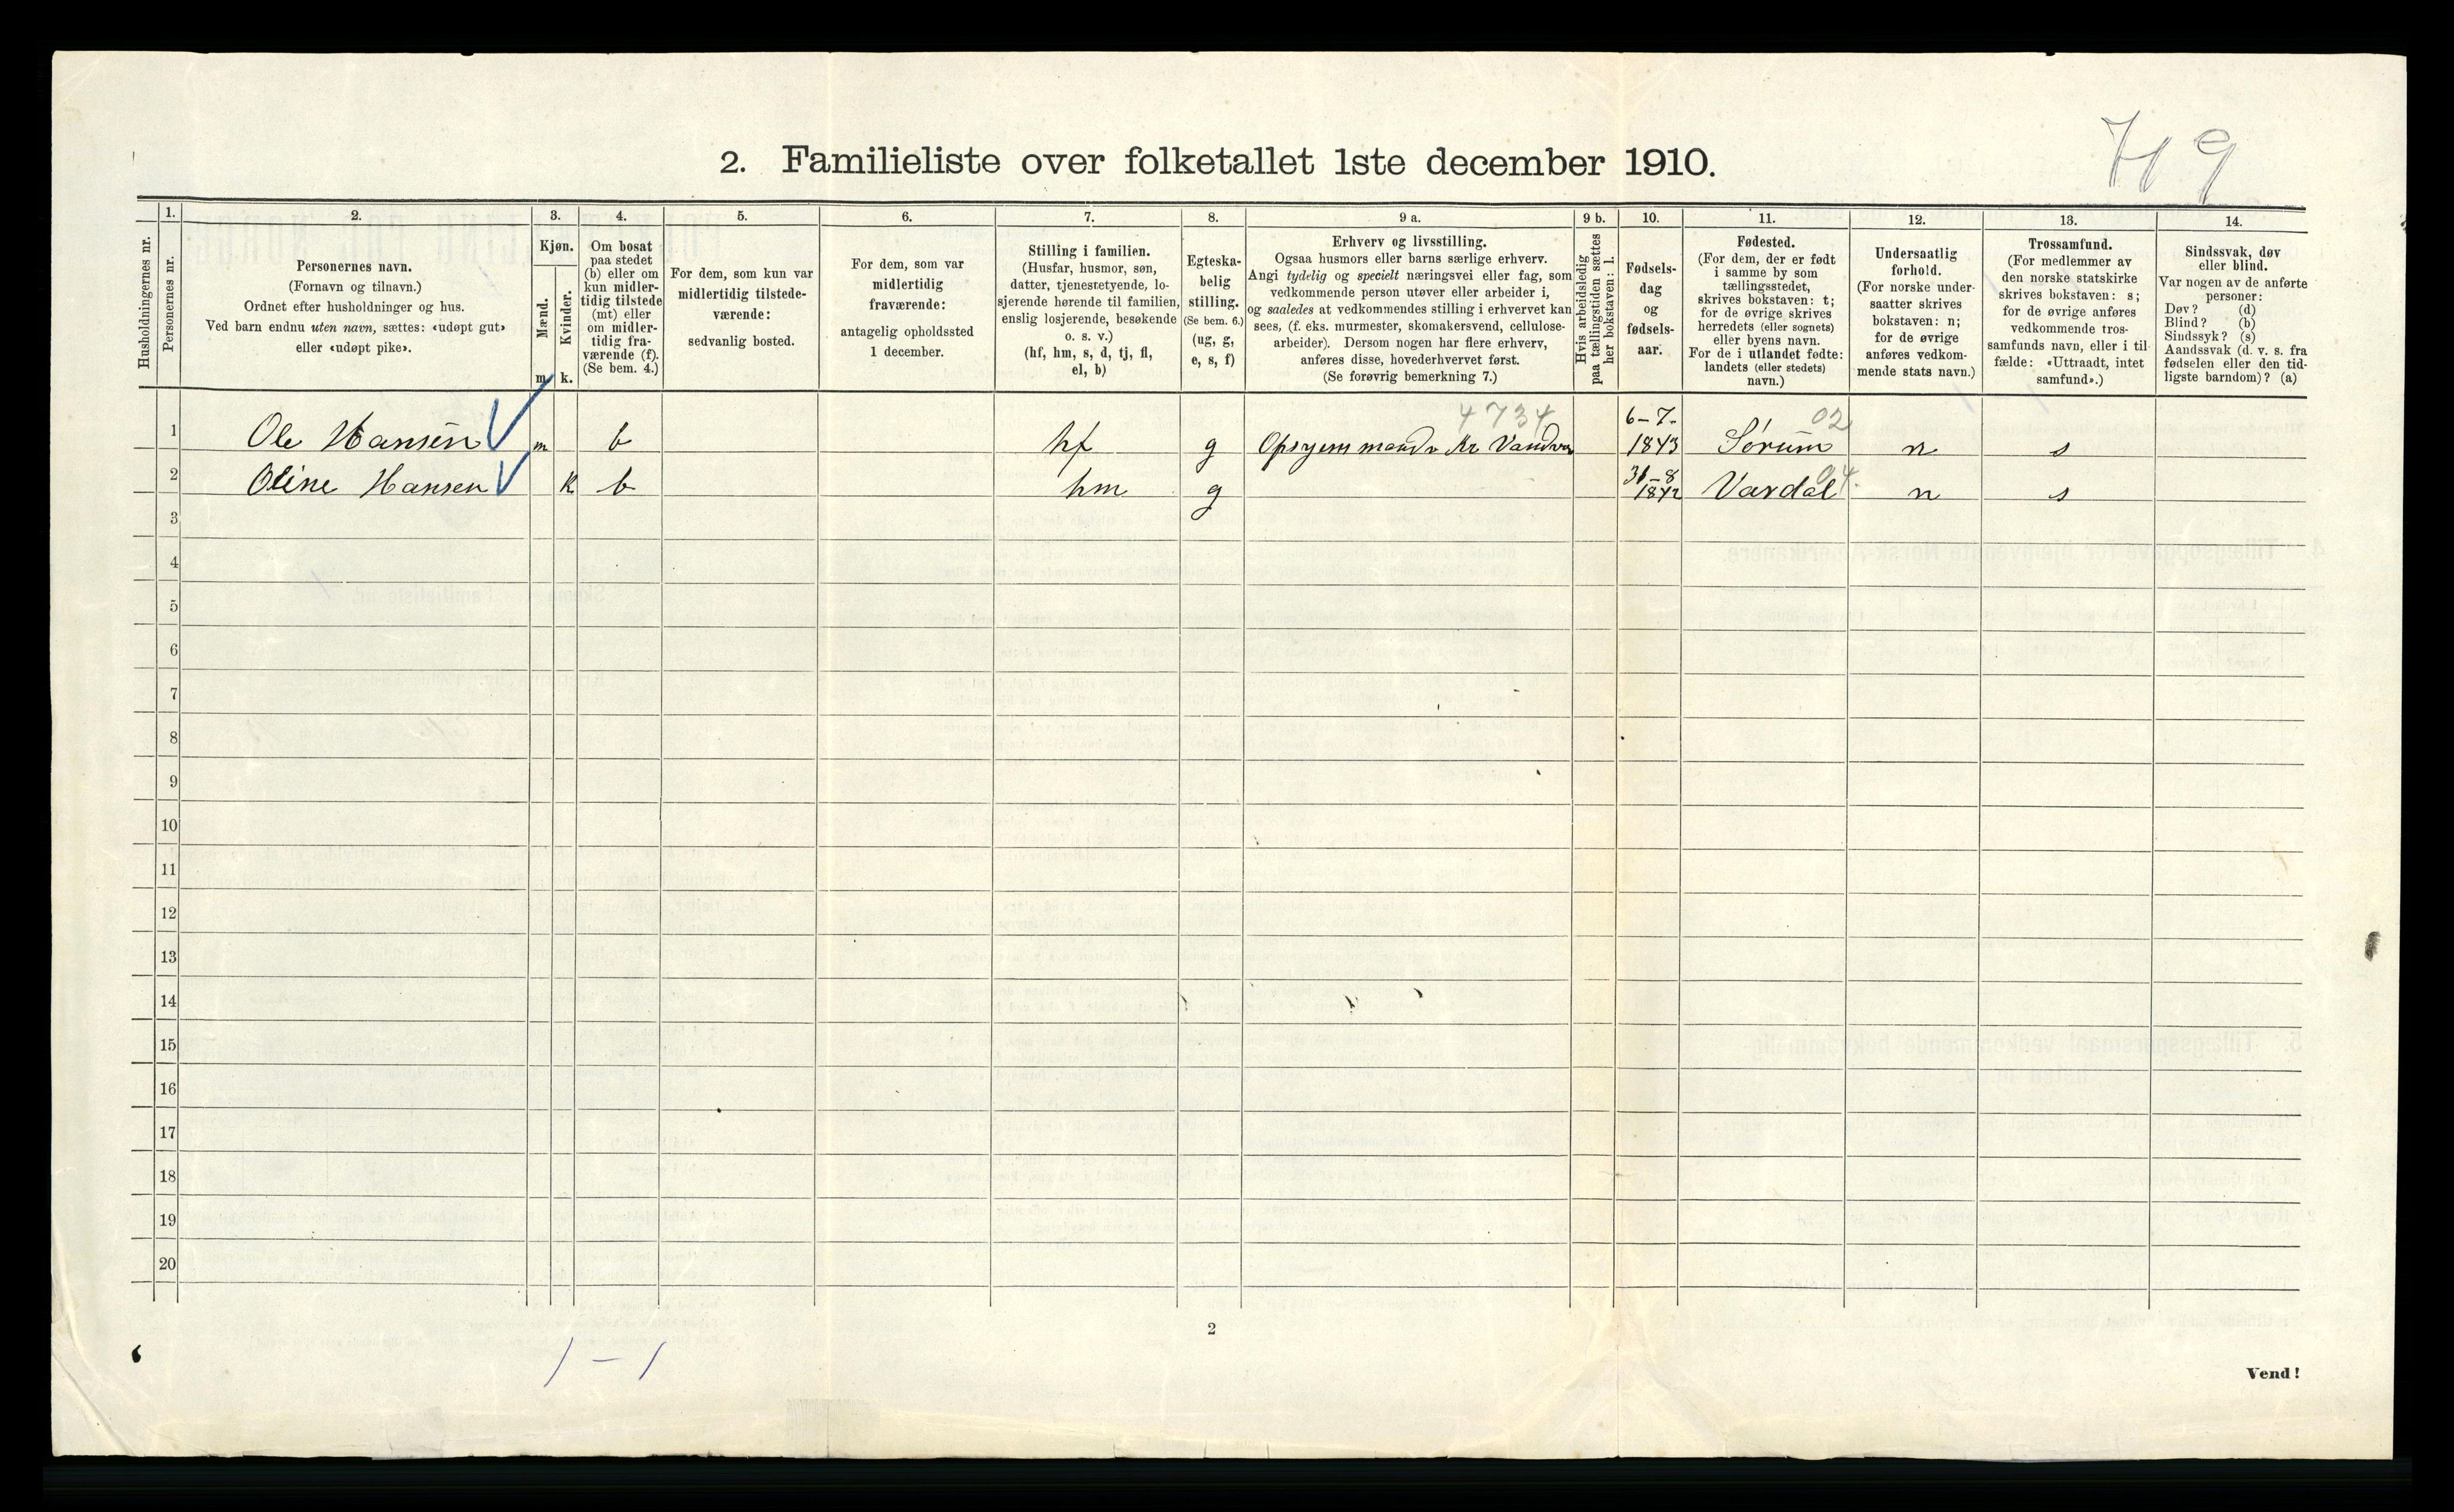 749
2. Familieliste over folketallet 1ste december 1910.
Husholdningernes nr.
1.
Personernes nr.
2.
Personernes navn.
(Fornavn og tilnavn.)
Ordnet efter husholdninger og hus.
Ved barn endnu uten navn, sættes: «udøpt gut»
eller «udøpt pike».
3.
Kjøn.
Mænd.
Kvinder.
m.
k.
4.
Om bosat
paa stedet
(b) eller om
kun midler-
tidig tilstede
(mt) eller
om midler-
tidig fra-
værende (f).
(Se bem. 4.)
5.
For dem, som kun var
midlertidig tilstede-
værende:
sedvanlig bosted.
6.
For dem, som var
midlertidig
fraværende:
antagelig opholdssted
1 december.
7.
Stilling i familien.
(Husfar, husmor, søn,
datter, tjenestetyende, lo-
sjerende hørende til familien,
enslig losjerende, besøkende
o. s. v.)
(hf, hm, s, d, tj, fl,
el, b)
8.
Egteska-
belig
stilling.
(Se bem. 6.)
(ug, g,
e, s, f)
9 a.
Erhverv og livsstilling.
Ogsaa husmors eller barns særlige erhverv.
Angi tydelig og specielt næringsvei eller fag, som
vedkommende person utøver eller arbeider i,
og saaledes at vedkommendes stilling i erhvervet kan
sees, (f. eks. murmester, skomakersvend, cellulose-
arbeider). Dersom nogen har flere erhverv,
anføres disse, hovederhvervet først.
(Se forøvrig bemerkning 7.)
9 b.
Hvis arbeidsledig
paa tællingstiden sættes
her bokstaven: l.
10.
Fødsels-
dag
og
fødsels-
aar.
11.
Fødested.
(For dem, der er født
i samme by som
tællingsstedet,
skrives bokstaven: t;
for de øvrige skrives
herredets (eller sognets)
eller byens navn.
For de i utlandet fødte:
landets (eller stedets)
navn.)
12.
Undersaatlig
forhold.
(For norske under-
saatter skrives
bokstaven: n;
for de øvrige
anføres vedkom-
mende stats navn.)
13.
Trossamfund.
(For medlemmer av
den norske statskirke
skrives bokstaven: s;
for de øvrige anføres
vedkommende tros-
samfunds navn, eller i til-
fælde: «Uttraadt, intet
samfund».)
14.
Sindssvak, døv
eller blind.
Var nogen av de anførte
personer:
Døv? (d)
Blind? (b)
Sindssyk? (s)
Aandssvak (d. v. s. fra
fødselen eller den tid-
ligste barndom)? (a)
4734
6-7- 02
1 Ole Hansen m b hf g Opsyns mand v Kr Vandv 1843 Sørum n s
31-8 04.
2 Oline Hansen k b hm g 1842 Vardal n s
3
4
5
6
7
8
9
10
11
12
13
14
15
16
17
18
19
20
2
1 - 1
Vend!